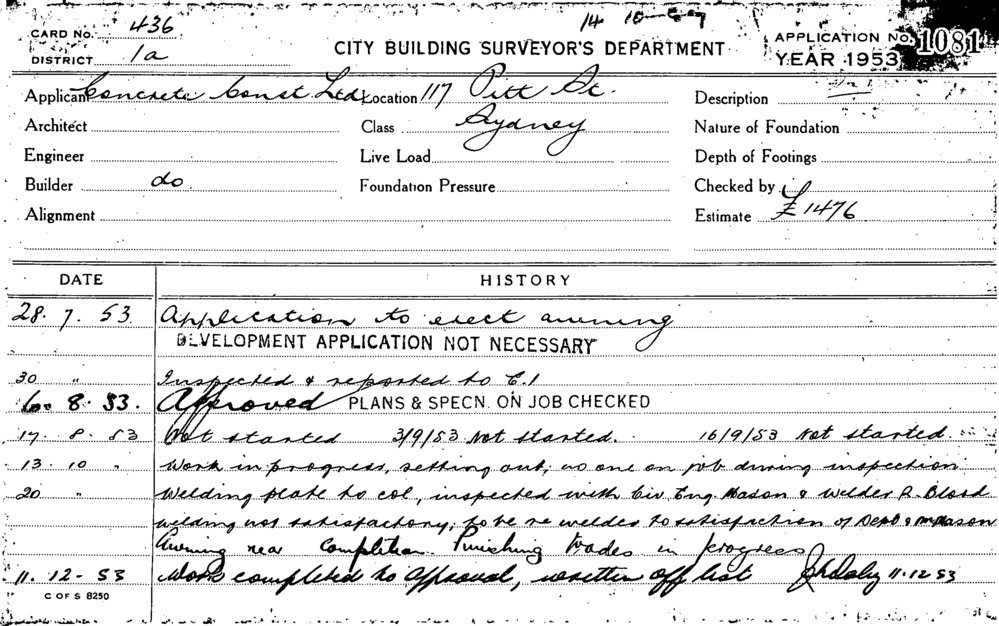 CARD No. 436
14
DISTRICT 1a
CITY BUILDING SURVEYOR'S DEPARTMENT
APPLICATION No. 1081
YEAR 1953
Applicant Concrete Const Ltd Location 117 Pitt St. Description
Architect Class Sydney Nature of Foundation
Engineer Live Load Depth of Footings
Builder do Foundation Pressure Checked by
Alignment Estimate £1476
DATE HISTORY
28. 7. 53. Application to erect awning
DEVELOPMENT APPLICATION NOT NECESSARY
30 " Inspected & reported to C.I
6. 8. 53. Approved PLANS & SPECN. ON JOB CHECKED
17. 8. 53 Not started 3/9/53 Not started. 16/9/53 Not started.
13. 10 " Work in progress, setting out, no one on job during inspection
20 " Welding plate to col, inspected with Civ. Eng. Mason & Welder R. Blood
welding not satisfactory, to be re welded to satisfaction of Dept & Mr Mason
Awning near Completion. Finishing trades in progress
11. 12 - 53 Work completed to approval, written off list 11.12.53
C OF S 8250